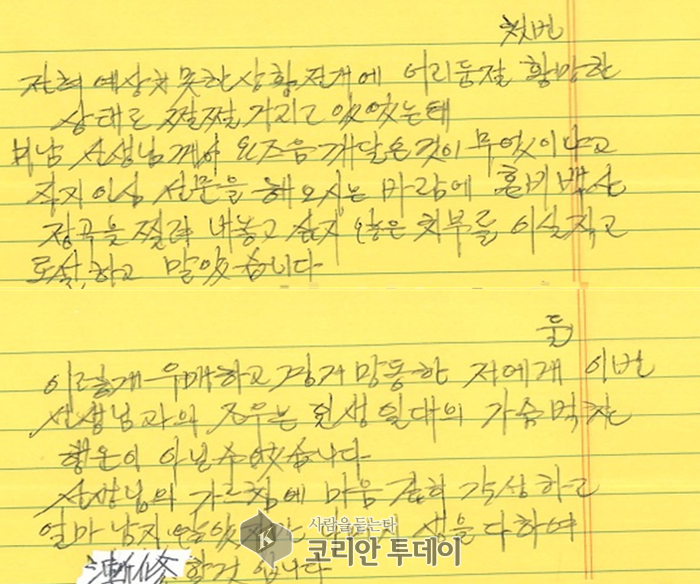 첫번
전혀 예상치 못한 상황 전개에 어리둥절 황망한
상태로 쩔쩔 거리고 있었는데
선생님께서 요즈음 깨달은 것이 무엇이냐고
직지인심 선문을 해오시는 바람에
정곡을 찔려 내놓고 싶지 않은 치부를 이실직고
로설,하고 말았습니다
둘
이렇게 우매하고 경거망동한 저에게 이번
선생님과의 조우는 일생일대의 가슴 벅찬
행운이 아닐 수 없습니다
선생님의 가르침에 마음 깊히 각성하고
얼마 남지 생을 다하여
漸修 할것 입니다
사람을 듣는다
K 코리안 투데이